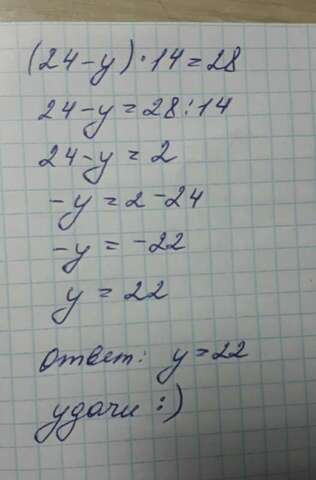 (24-y)·14=28
24-y=28:14
24-y=2
-y=2-24
-y=-22
y=22
Ответ: y=22
удачи :)